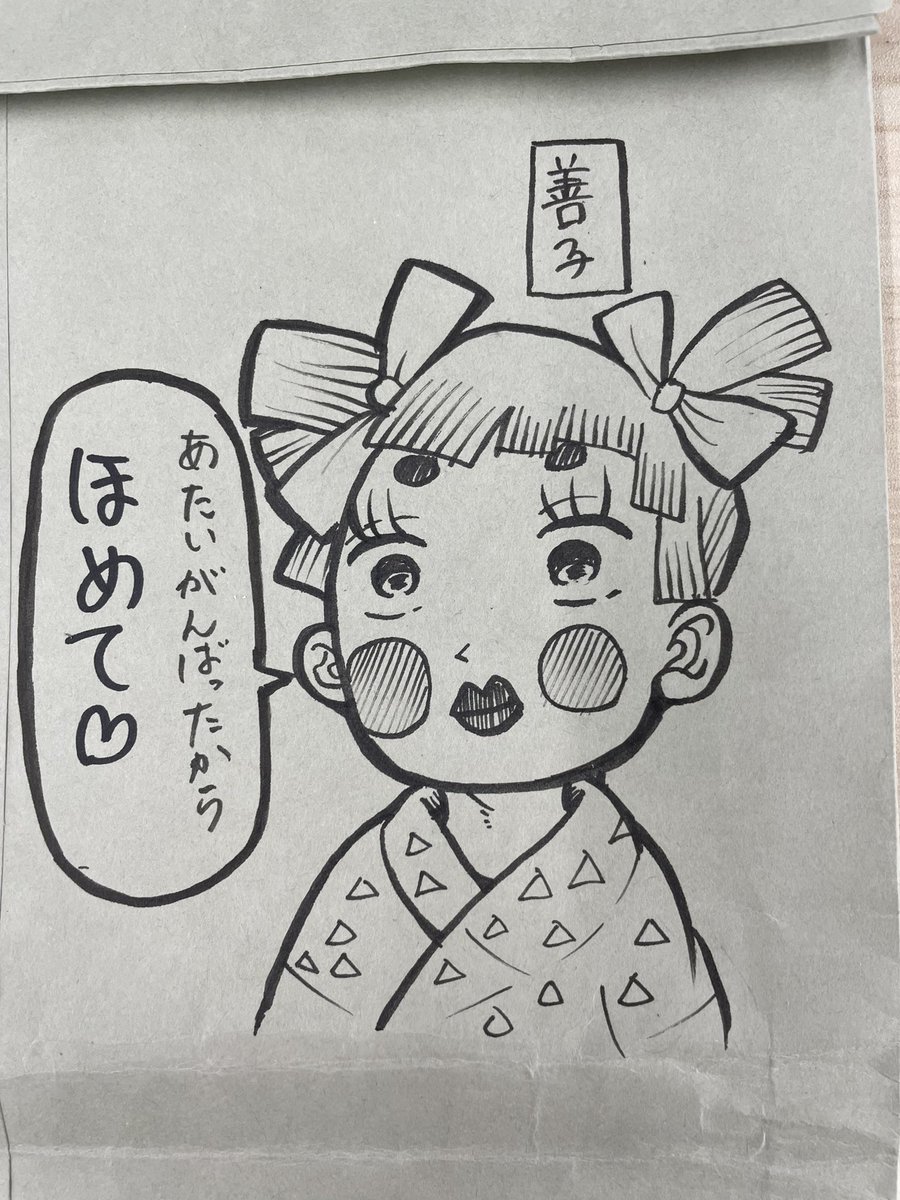 善子
あたいがんばったから
ほめて♡